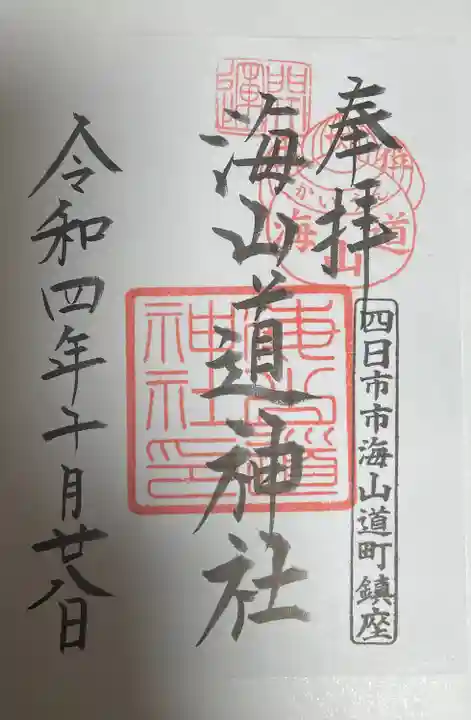 奉拝
四日市市海山道町鎮座
開運
かいうん
海山道
海山道神社
海山道神社印
令和四年十月廿八日